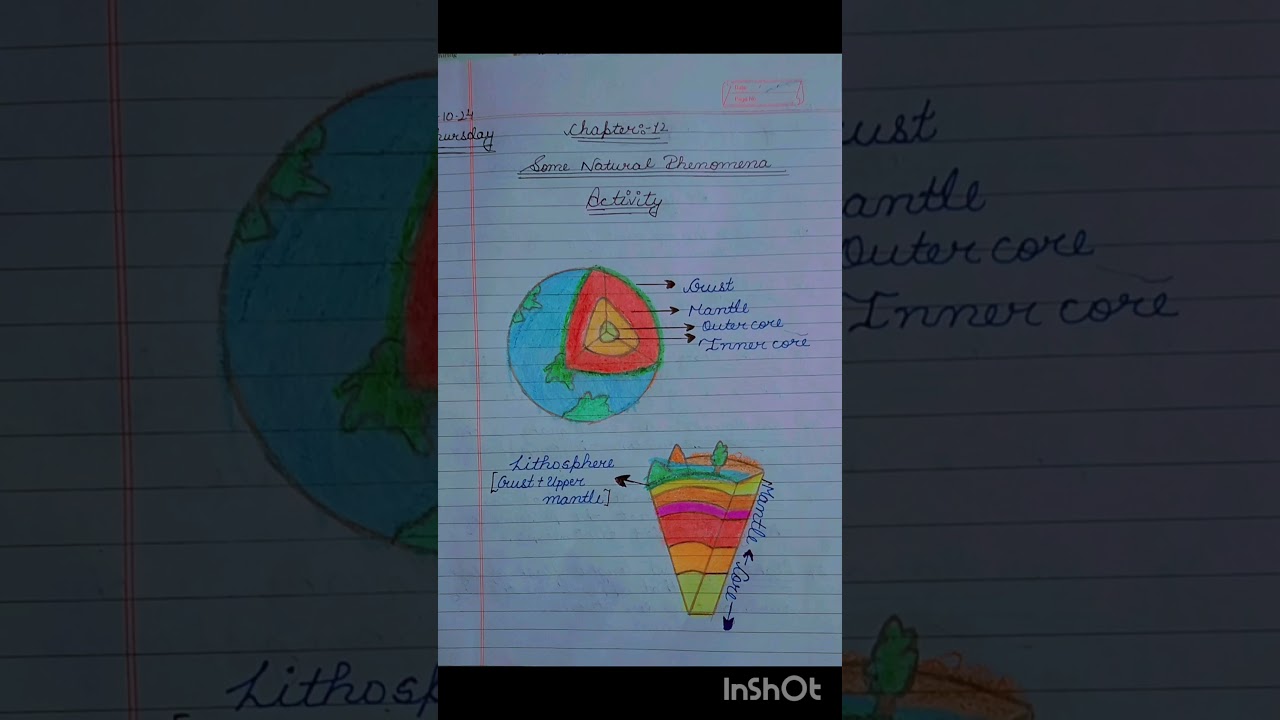 10.24
ursday
Chapter:-12
Some Natural Phenomena
Activity
Crust
Mantle
Outer core
Inner core
Lithosphere
[Crust + Upper
mantle]
Mantle
Core
InShOt
ust
antle
Outer core
Inner core